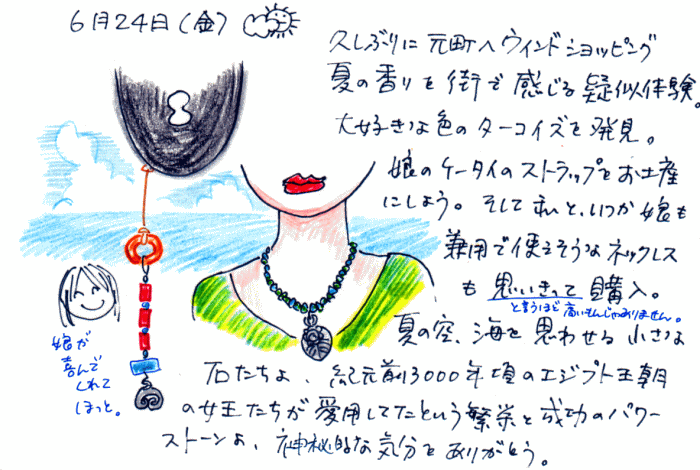 6月24日(金)
久しぶりに元町へウィンドショッピング
夏の香りを街で感じる疑似体験。
大好きな色のターコイズを発見。
娘のケータイのストラップをお土産
にしよう。そして私と、いつか娘も
兼用で使えそうなネックレス
も思いきって購入。
と言うほど高いもんじゃありません。
夏の空、海を思わせる小さな
石たちよ、紀元前3000年頃のエジプト王朝
の女王たちが愛用してたという繁栄と成功のパワー
ストーンよ、神秘的な気分をありがとう。
娘が
喜んで
くれて
ほっと。